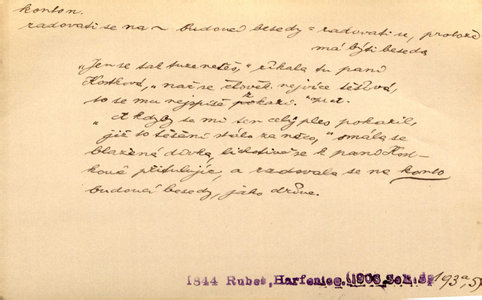 konton.
radovati se na ~ budoucí besedy = radovati se, protože
má býti beseda
„Jen se tak tuze netěš,“ říkala tu paní
Kostková, „nač se člověk nejvíce těšívá,
to se mu nejspíše pokazí.“
„A kdyby se mi ten celý ples pokazil,
již to těšení stálo za něco,“ smála se
blažená dívka, lichotivě se k paní Kost-
kové přitulujíc, a radovala se na konto
budoucí besedy, jako dříve.
1844 Rubeš, Harfenice. (1906, Sol. 3) 193a,5